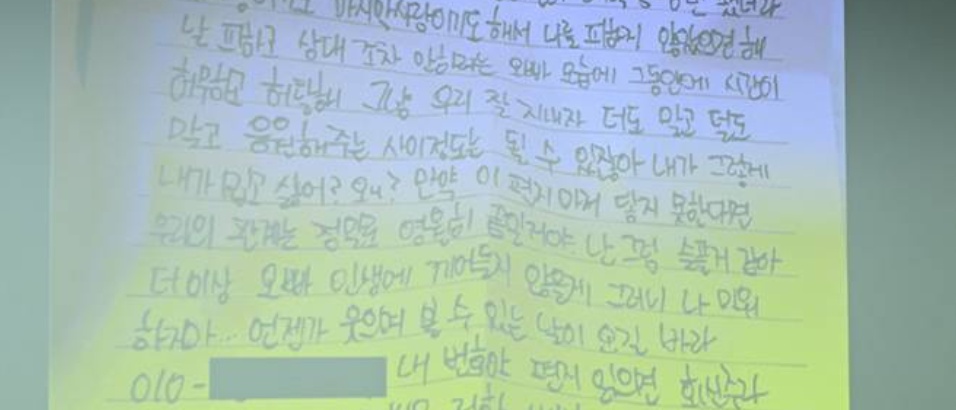 마지막사랑이기도 해서 나를 피하지 않았으면 해
날 피하고 상대 조차 안하려는 오빠 모습에 그동안에 시간이
허무하고 허탈해 그냥 우리 잘 지내자 더도 말고 덜도
말고 응원해주는 사이정도는 될 수 있잖아 내가 그렇게
내가 밉고 싫어? 왜? 만약 이 편지마저 닿지 못한다면
우리의 관계는 정말로 영원히 끝일거야 난 그럼 슬플거 같아
더이상 오빠 인생에 끼어들지 않을게 그러니 나 미워
하지마... 언젠가 웃으며 볼 수 있는 날이 오길 바라
010- 내 번호야 편지 읽으면 회신주라